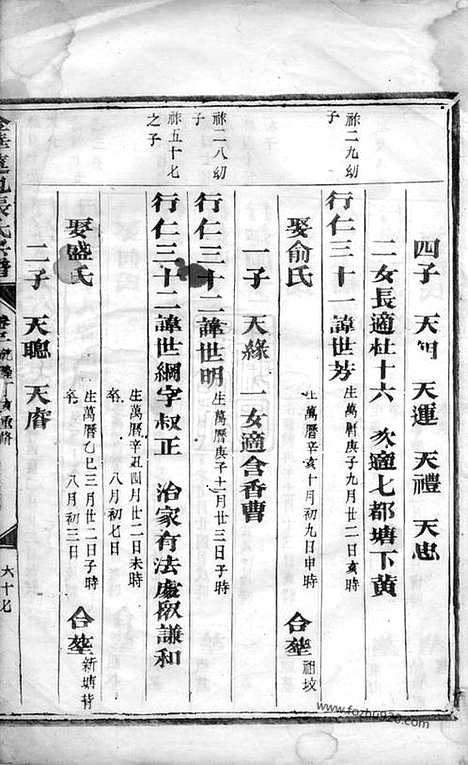 四子 天明 天運 天禮 天忠
二女長適杜十六 次適七都塘下黄
祿二九幼子
行仁三十一諱世芳 生萬曆庚子九月廿二日亥時
娶俞氏 生萬曆辛亥十月初九日申時 合塟祖坟
一子 天緣 一女適含香曹
祿二八幼子
行仁三十二諱世明 生萬曆庚子十二月廿三日子時
祿五十七之子
行仁三十二諱世綱字叔正 治家有法處敵謙和
生萬曆辛丑四月廿二日未時
卒 八月初七日
娶盛氏 生萬曆乙巳三月廿二日子時
卒 八月初三日 合塟新塘背
二子 天聰 天㢝
氏宗譜
重修
六十七
www.fozhu920.com